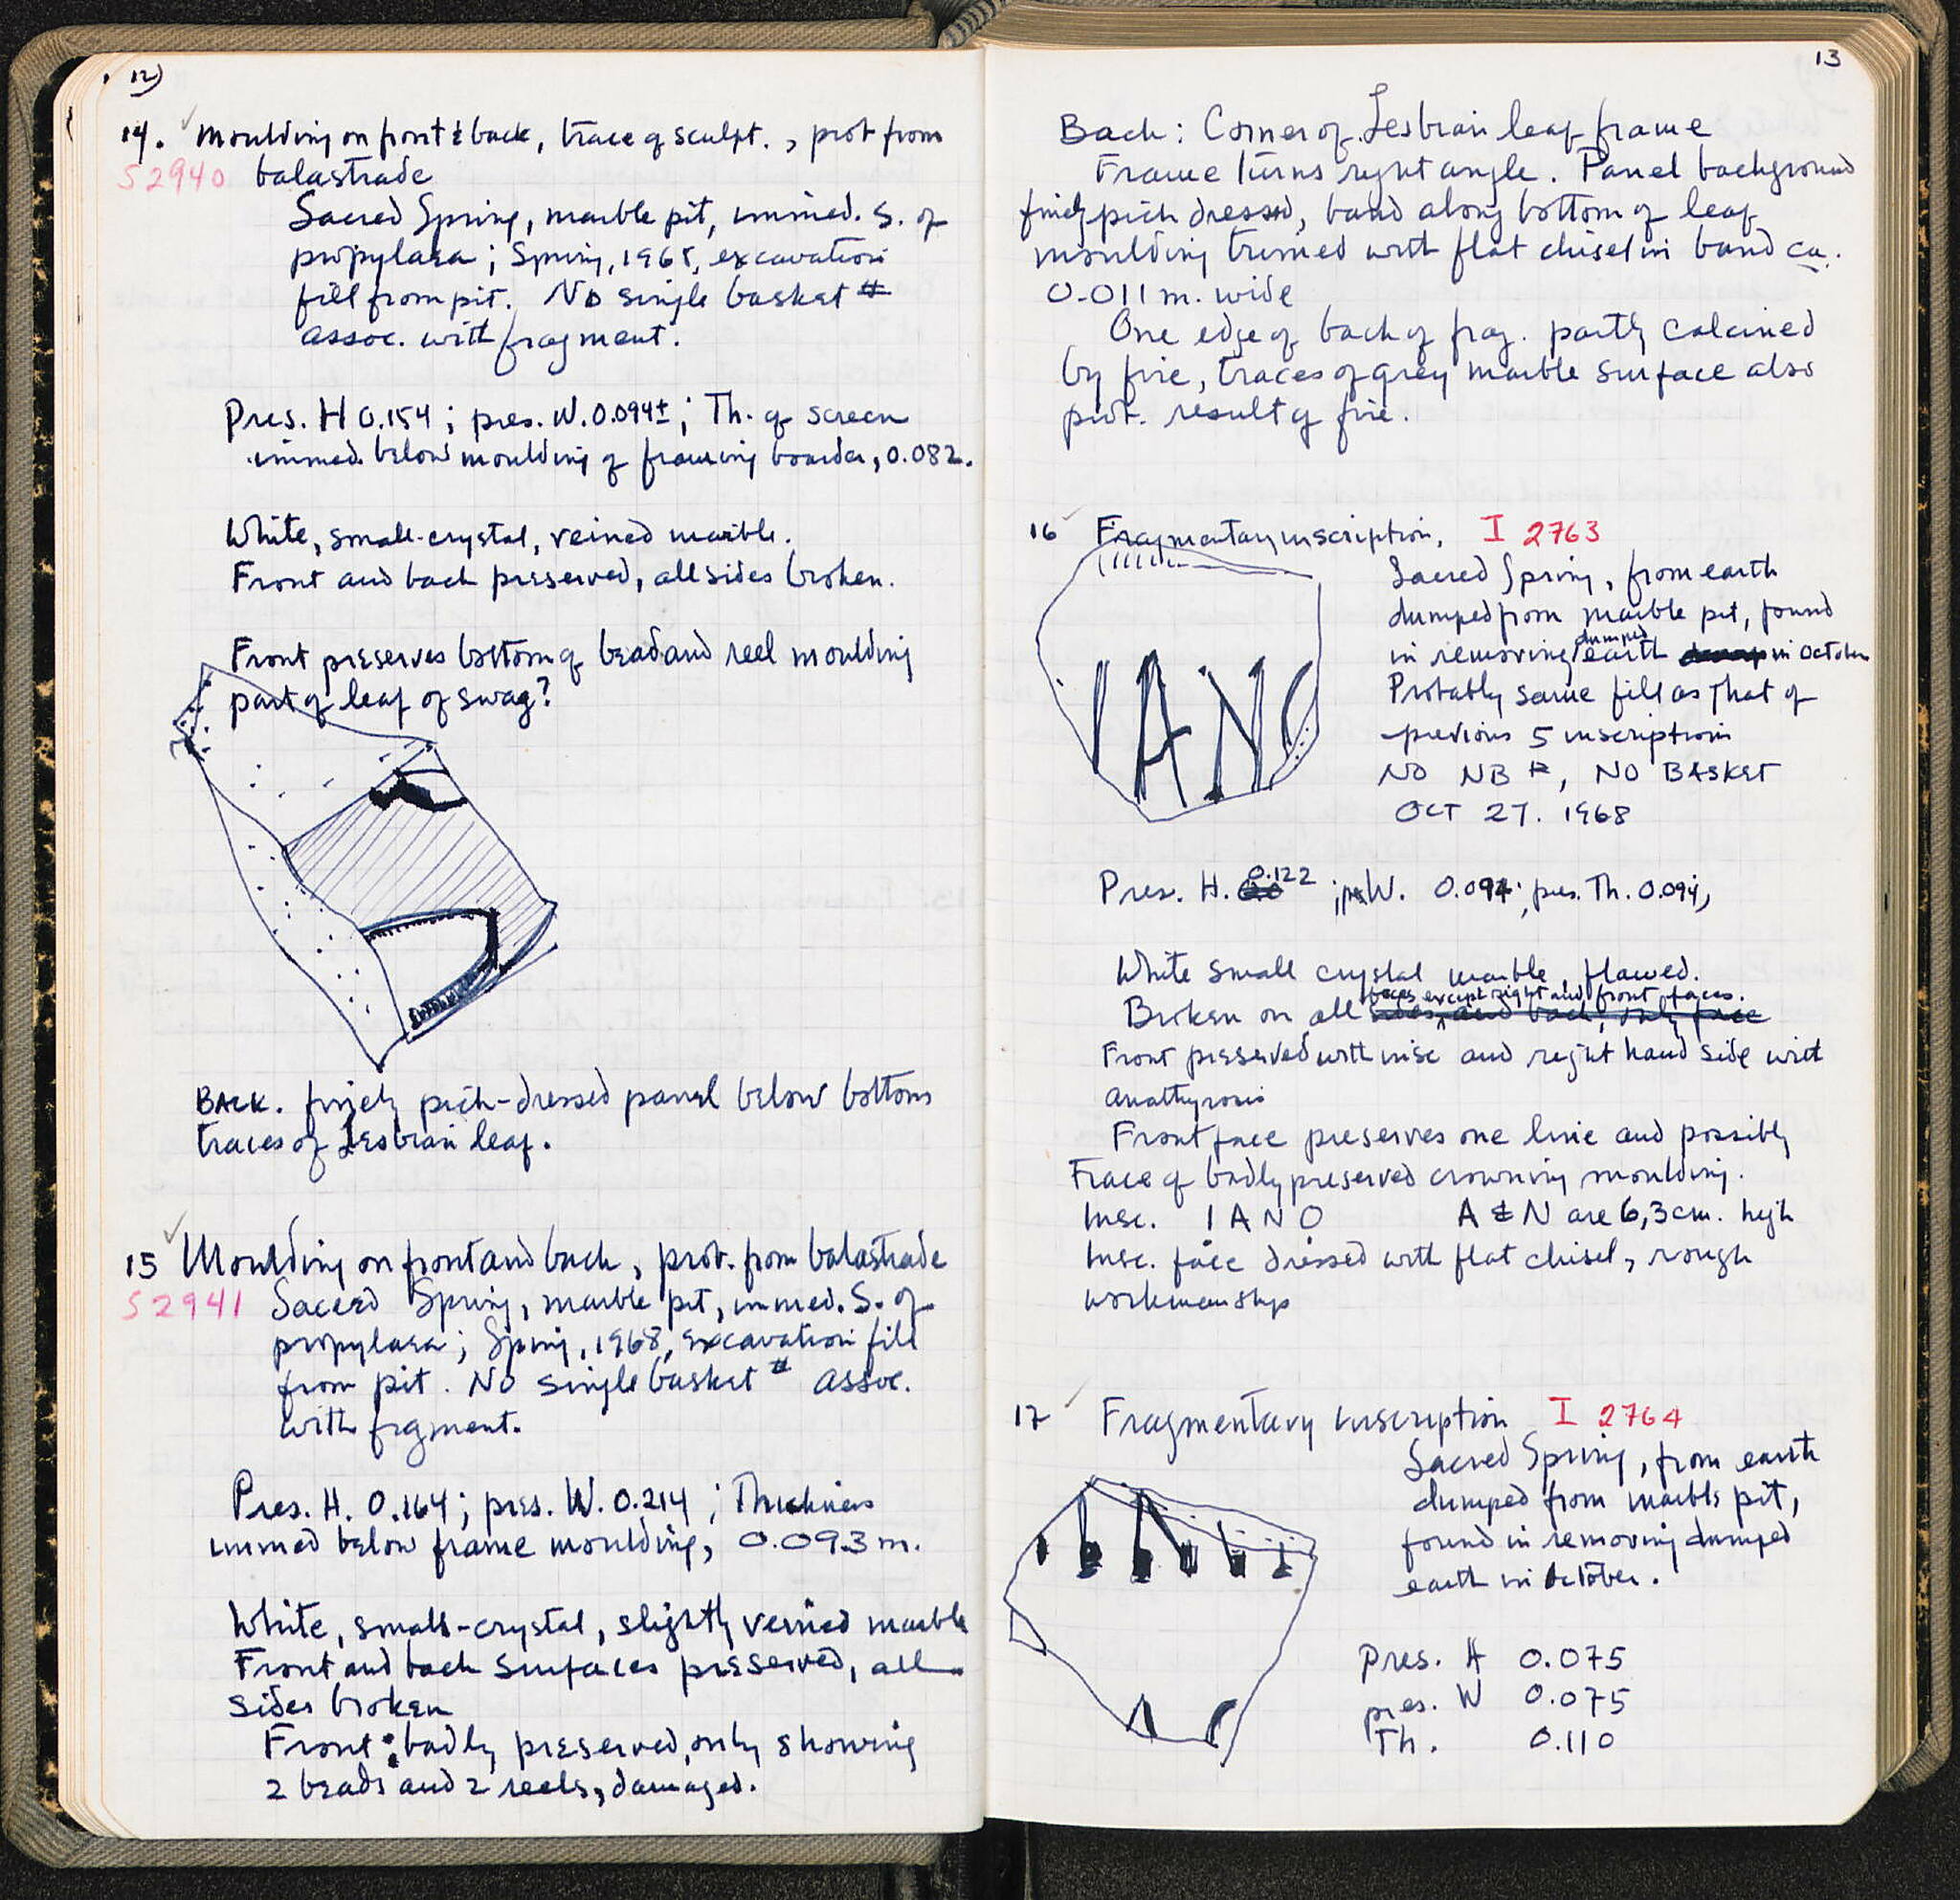 12)
14. Moulding on front & back, trace of sculpt., prob from
S 2940 balastrade
Sacred Spring, marble pit, immed. S. of
propylaea; Spring, 1968, excavation
fill from pit. No single basket #
assoc. with fragment.
Pres. H 0.154; pres. W. 0.094±; Th. of screen
immed. below moulding of framing boarder, 0.082.
White, small-crystal, veined marble.
Front and back preserved, all sides broken.
Front preserves bottom of bead and reel moulding
part of leaf of swag?
BACK. finely pick-dressed panel below bottom
traces of Lesbian leaf.
15 Moulding on front and back, prob. from balastrade
S 2941 Sacred Spring, marble pit, immed. S. of
propylaea; Spring, 1968, excavation fill
from pit. No single basket # assoc.
with frgment.
Pres. H. 0.164; pres. W. 0.214; Thickness
immed below frame moulding, 0.093 m.
White, small-crystal, slightly veined marble
Front and back surfaces preserved, all
sides broken
Front: badly preserved, only showing
2 beads and 2 reels, damaged.
13
Back: Corner of Lesbian leaf frame
Frame turns right angle. Panel background
finely pick dressed, band along bottom of leaf
moulding trimed with flat chisel in band ca.
0.011 m. wide
One edge of back of frag. partly calcined
by fire, traces of grey marble surface also
prob. result of fire.
16 Fragmentary inscription, I 2763
Sacred Spring, from earth
dumped from marble pit, found
in removing dumped earth in October
Probably same fill as that of
previous 5 inscription
NO NB #, NO BASKET
OCT 27. 1968
IANO
Pres. H. 0.122; pres W. 0.094; pres. Th. 0.094,
White small crystal marble, flawed.
Broken on all faces except right and front faces.
Front preserved with insc and right hand side with
anathyrosis
Front face preserves one line and possibly
trace of badly preserved crowning moulding.
Insc. I A N O A & N are 6,3 cm. high
Insc. face dressed with flat chisel, rough
workmanship
17 Fragmentary inscription I 2764
Sacred Spring, from earth
dumped from marble pit,
found in removing dumped
earth in October.
Pres. H 0.075
pres. W 0.075
Th. 0.110